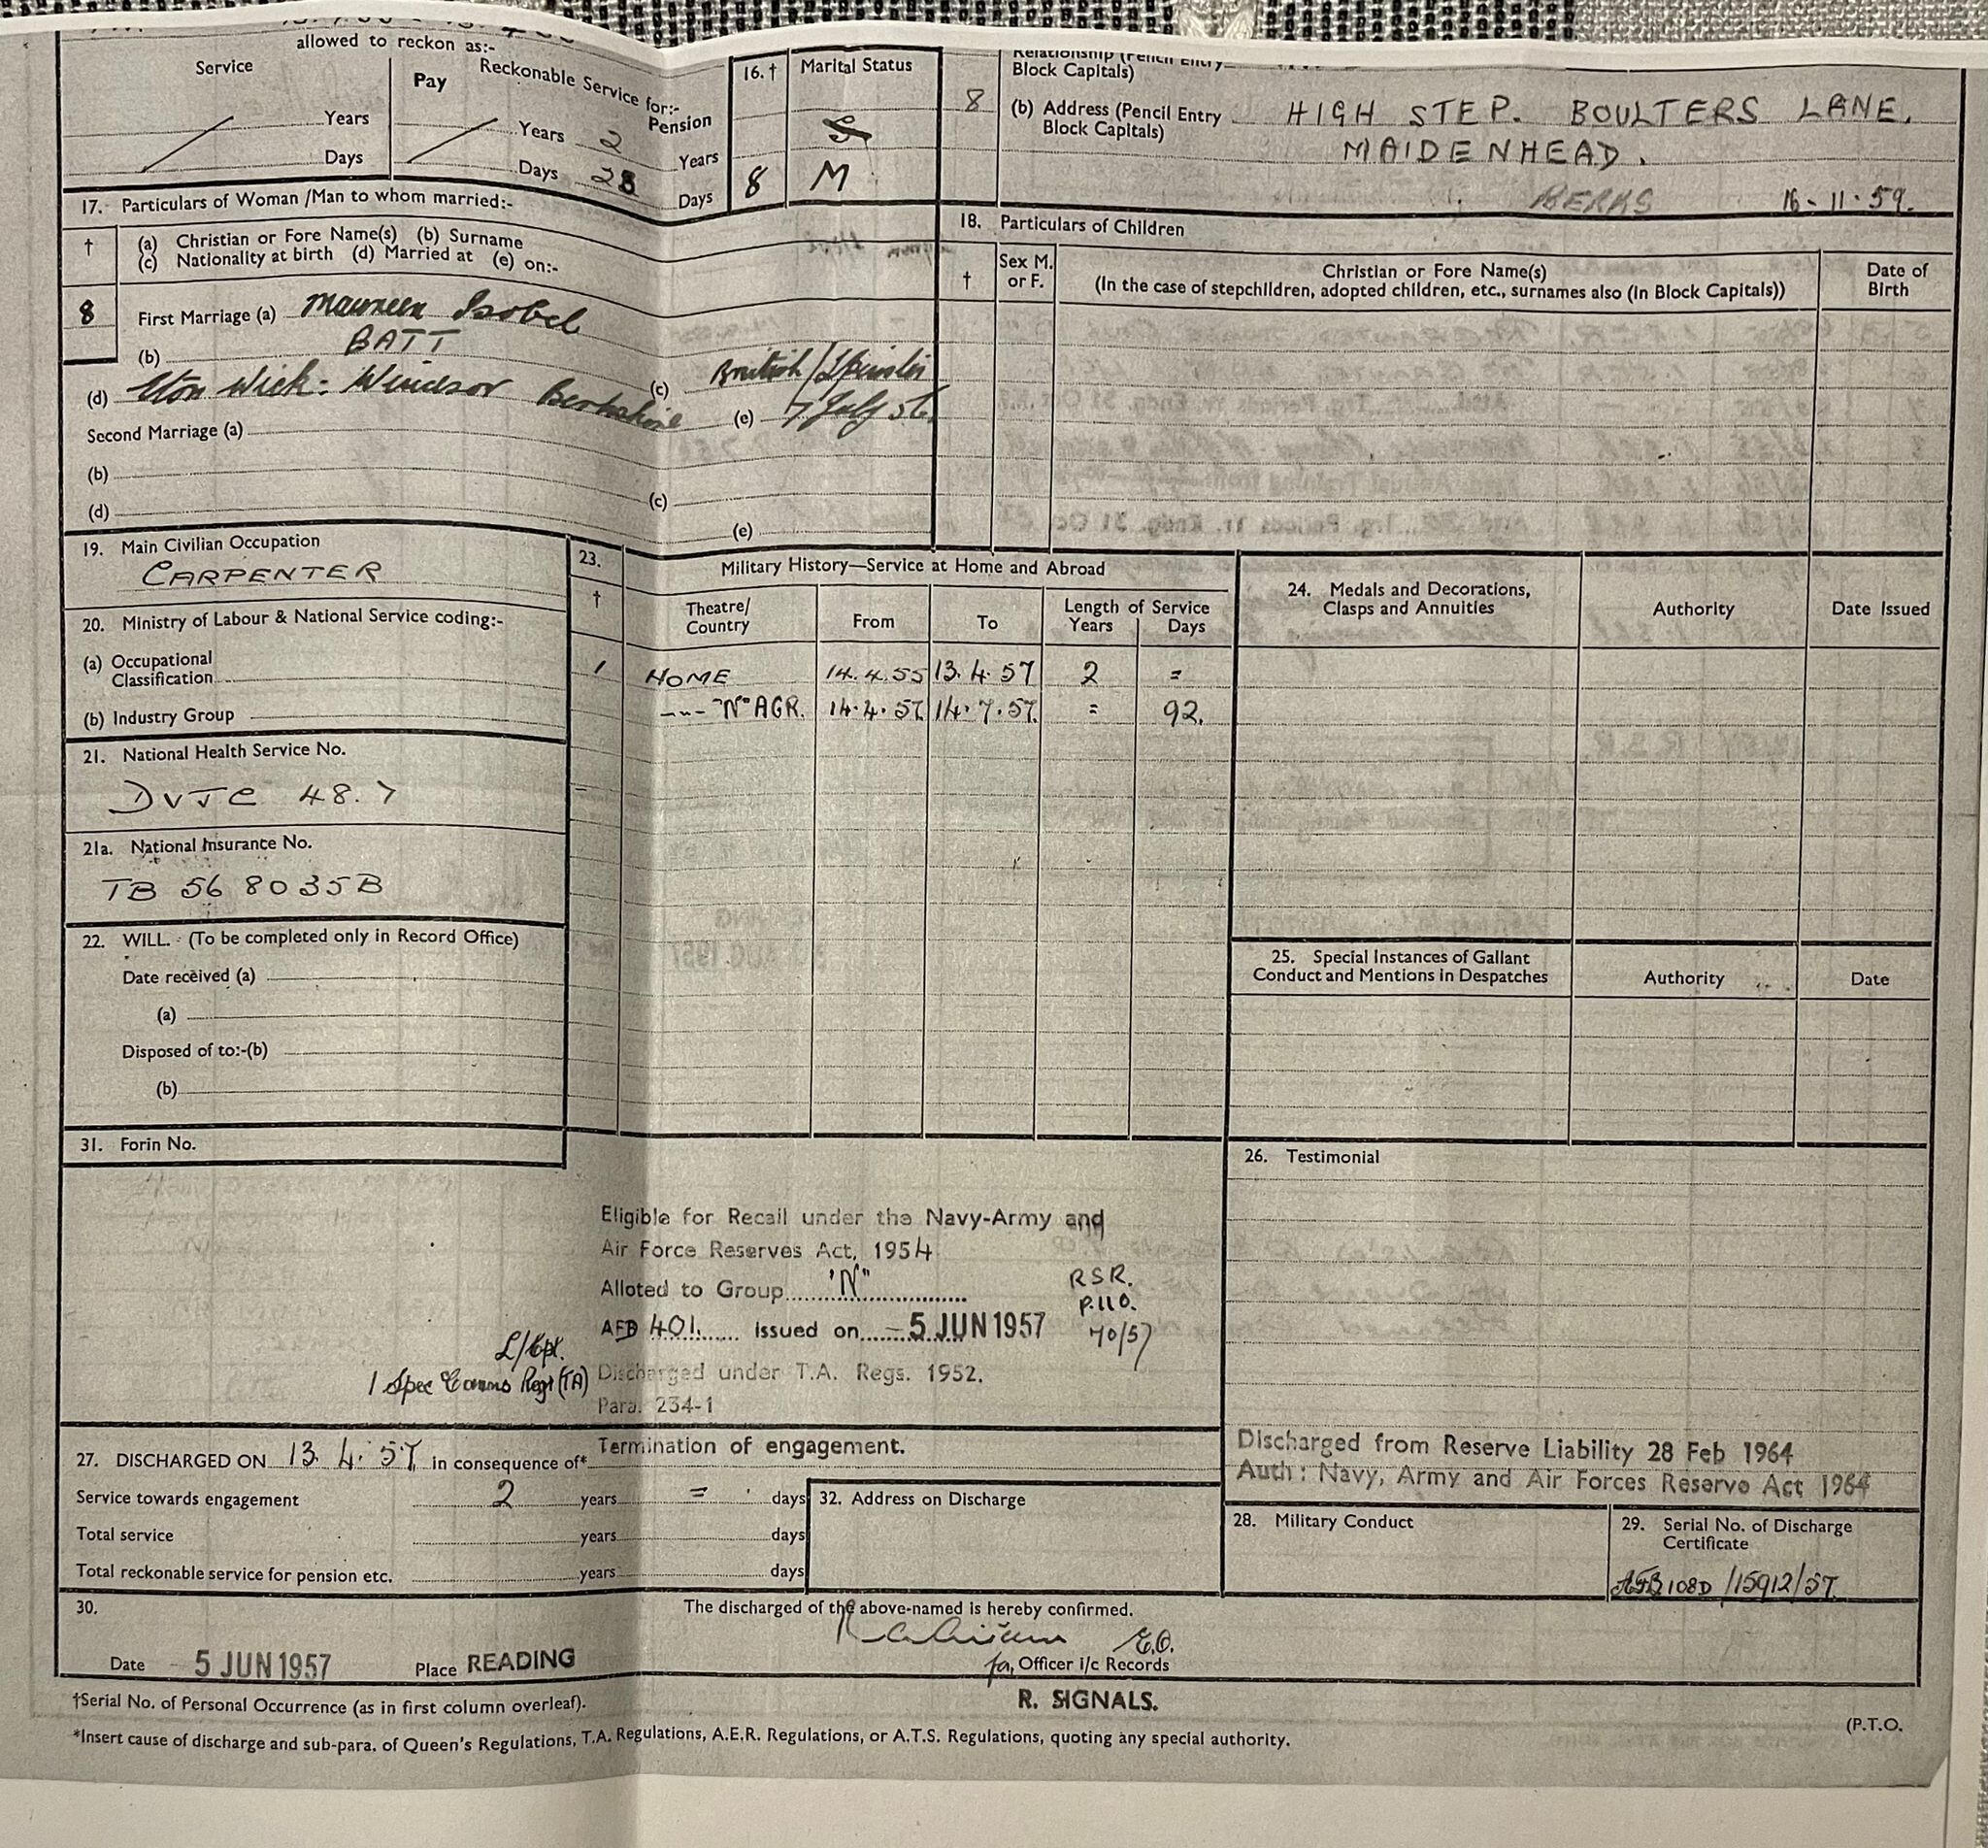 allowed to reckon as:-
Service
Pay
Reckonable Service for:-
Pension
Years
Years 2 Years
Days
Days 28 Days
16.† Marital Status
S
8 M
Relationship (Pencil Entry
Block Capitals)
8
(b) Address (Pencil Entry
Block Capitals)
HIGH STEP. BOULTERS LANE.
MAIDENHEAD.
BERKS 16-11-59.
17. Particulars of Woman/Man to whom married:-
† (a) Christian or Fore Name(s) (b) Surname
(c) Nationality at birth (d) Married at (e) on:-
8 First Marriage (a) Maureen Isobel
(b) BATT
(c) British/Spinster
(d) Eton Wick: Windsor Berkshire (e) 7 July 56
Second Marriage (a)
(b)
(c)
(d)
(e)
18. Particulars of Children
† Sex M. or F.
Christian or Fore Name(s)
(In the case of stepchildren, adopted children, etc., surnames also (in Block Capitals))
Date of Birth
19. Main Civilian Occupation
CARPENTER
20. Ministry of Labour & National Service coding:-
(a) Occupational
Classification
(b) Industry Group
21. National Health Service No.
DVJC 48.7
21a. National Insurance No.
TB 56 8035B
22. WILL. (To be completed only in Record Office)
Date received (a)
(a)
Disposed of to:-(b)
(b)
31. Forin No.
23. Military History—Service at Home and Abroad
† Theatre/Country From To Length of Service
Years Days
1 HOME 14.4.55 13.4.57 2 =
-~- "N" AGR. 14.4.57 14.7.57. = 92.
24. Medals and Decorations,
Clasps and Annuities
Authority Date Issued
25. Special Instances of Gallant
Conduct and Mentions in Despatches
Authority Date
26. Testimonial
Eligible for Recall under the Navy-Army and
Air Force Reserves Act, 1954
Alloted to Group "N" RSR.
P.110.
AFB 401. Issued on - 5 JUN 1957 40/57
L/Cpl.
1 Spec Comms Regt (TA)
Discharged under T.A. Regs. 1952.
Para. 234-1
27. DISCHARGED ON 13.4.57 in consequence of* Termination of engagement.
Service towards engagement 2 years = days
Total service years days
Total reckonable service for pension etc. years days
32. Address on Discharge
Discharged from Reserve Liability 28 Feb 1964
Auth: Navy, Army and Air Forces Reserve Act 1964
28. Military Conduct
29. Serial No. of Discharge
Certificate
AFB108D/15912/57
30. The discharged of the above-named is hereby confirmed.
E.O.
Date - 5 JUN 1957 Place READING for Officer i/c Records
†Serial No. of Personal Occurrence (as in first column overleaf).
R. SIGNALS.
*Insert cause of discharge and sub-para. of Queen's Regulations, T.A. Regulations, A.E.R. Regulations, or A.T.S. Regulations, quoting any special authority.
(P.T.O.